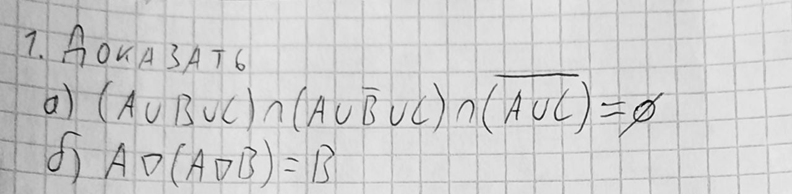 1. ДОКАЗАТЬ
а) (A∪B∪C)∩(A∪B̅∪C)∩(\overline{A∪C})=∅
б) A▽(A▽B)=B